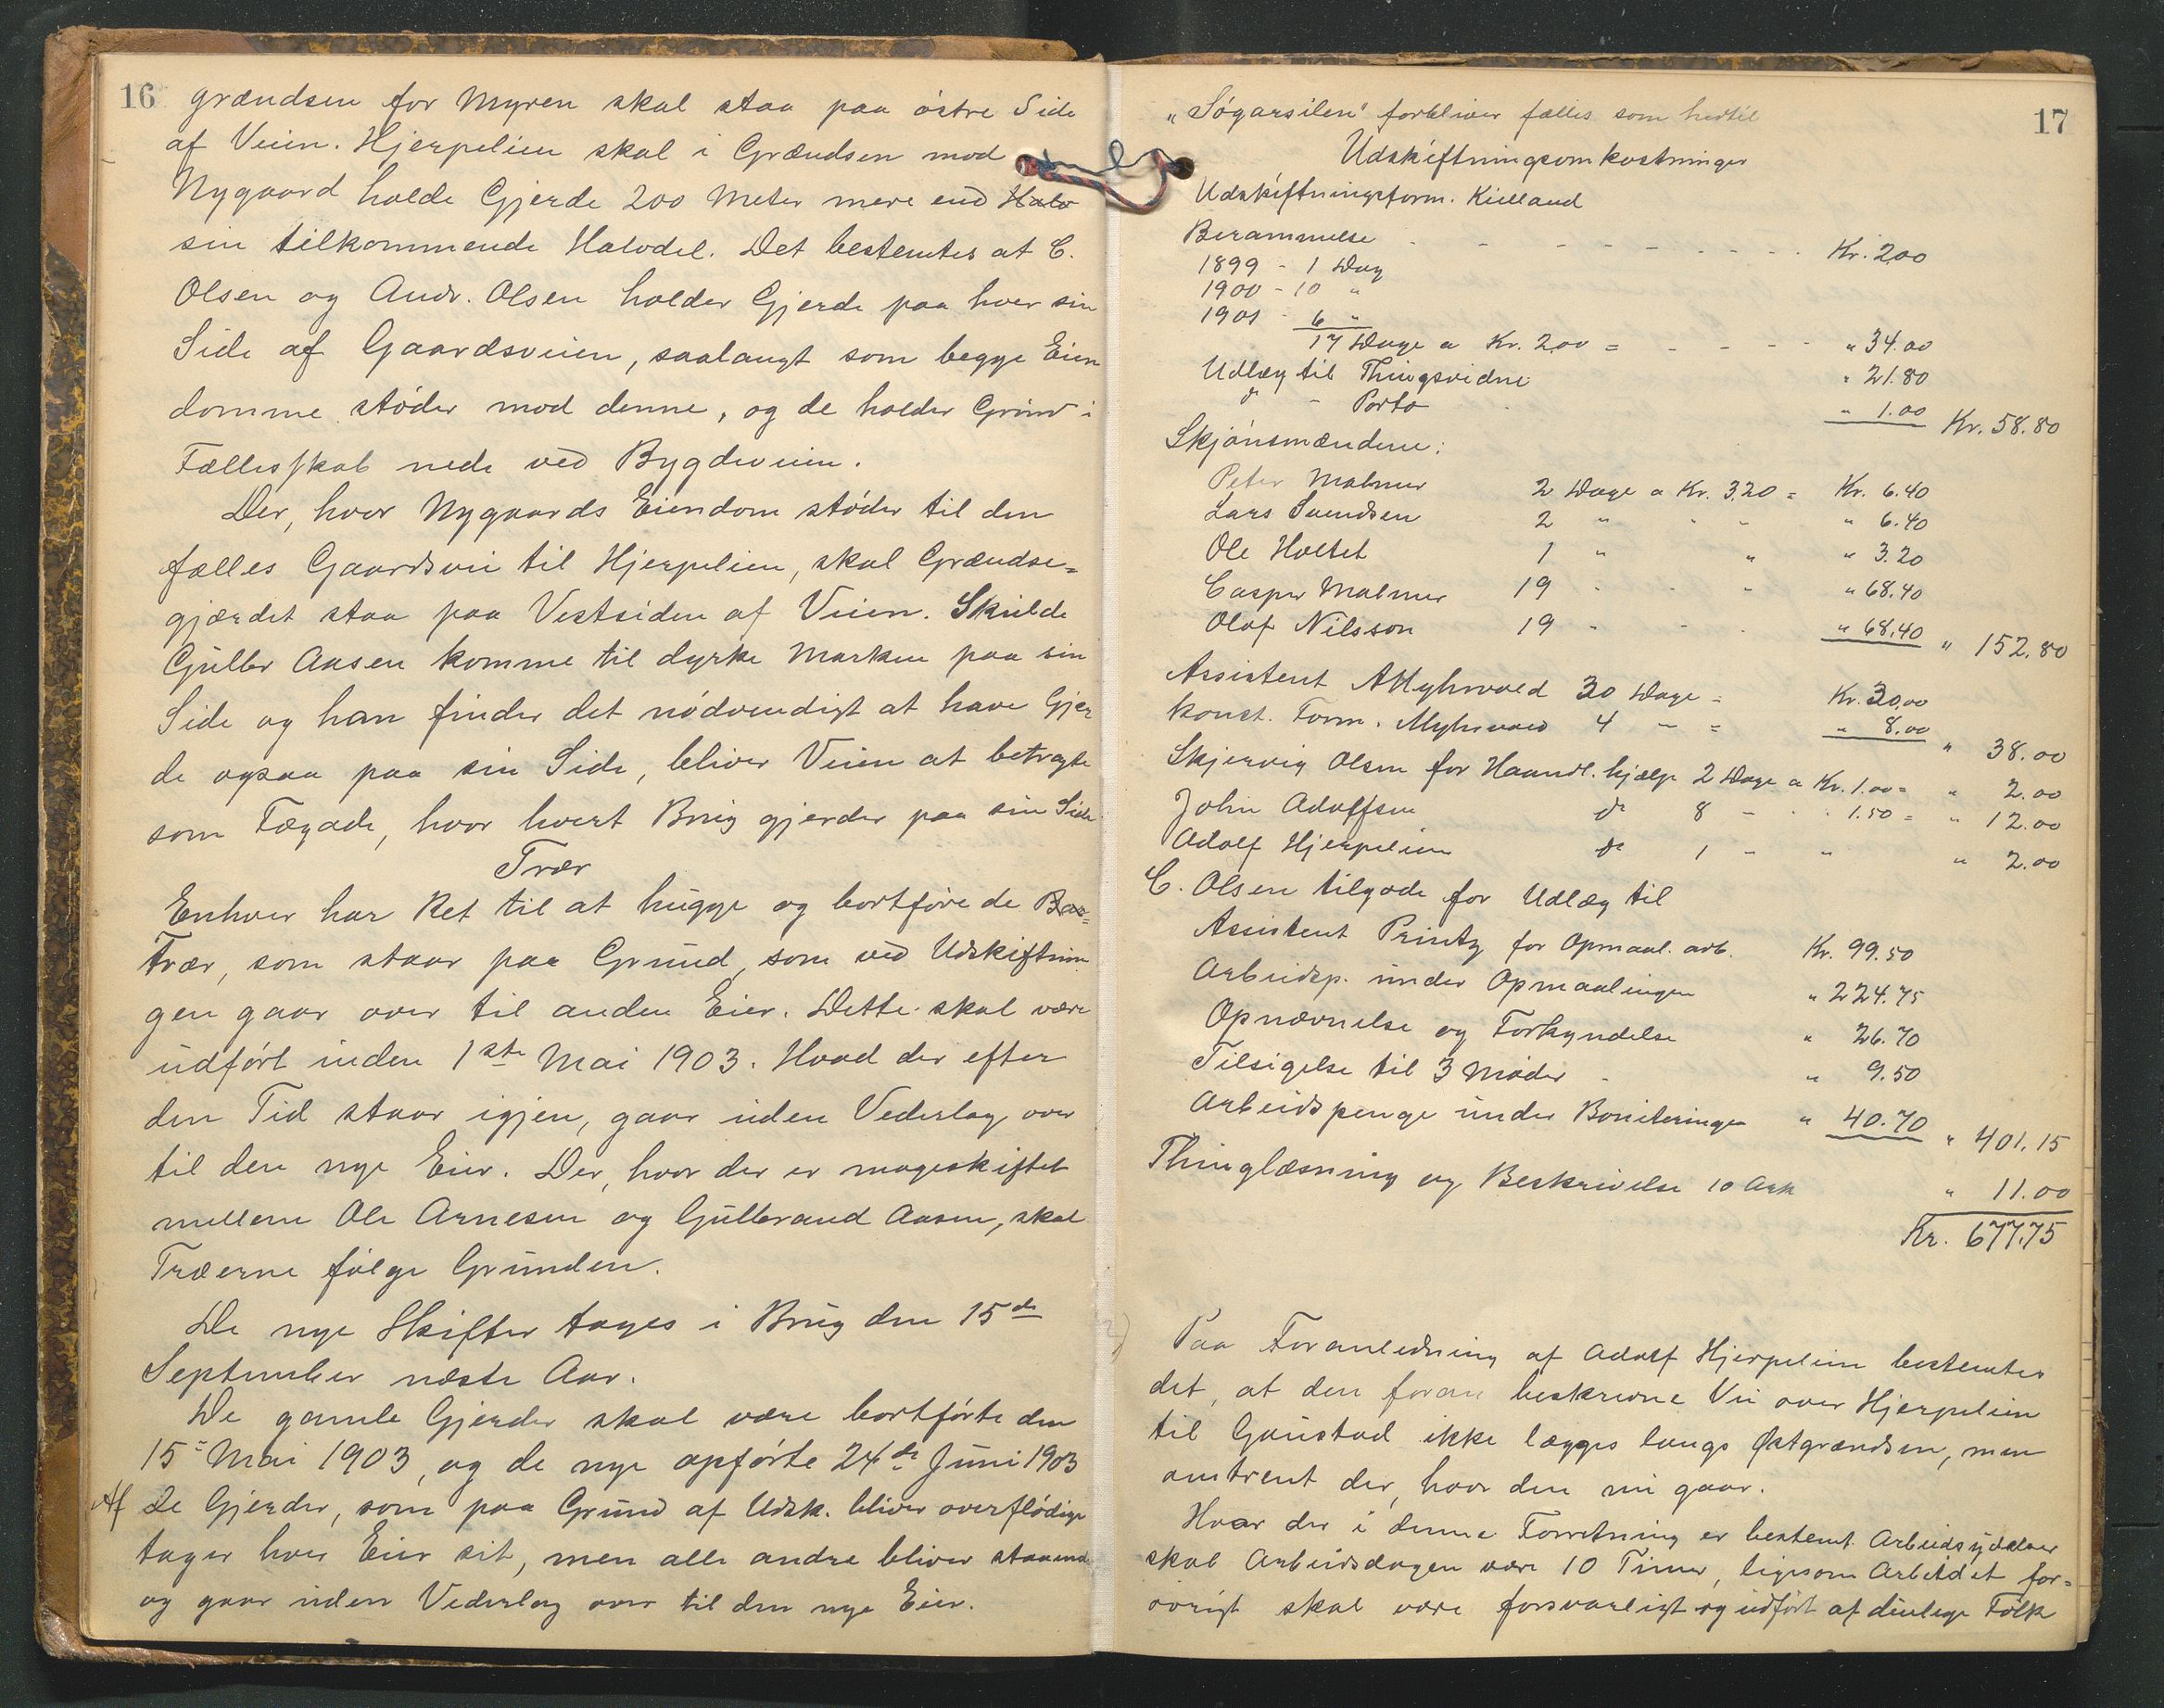 16
grændsen for Myren skal staa paa östre Side
af Veien. Hjerpelien skal i Grændsen mod
Nygaard holde Gjerde 200 Meter mere end Halv
sin tilkommende Halvdel. Det bestemtes at C.
Olsen og Andr. Olsen holder Gjerde paa hver sin
Side af Gaardsveien, saalangt som begge Eien
domme støder mod denne, og de holder Grind i
Fællesskab nede ved Bygdeveien.
Der, hvor Nygaards Eiendom støder til den
fælles Gaardsvei til Hjerpelien, skal Grændse=
gjærdet staa paa Vestsiden af Veien. Skulde
Gulbr Aasen komme til dyrke Marken paa sin
Side og han finder det nödvendigt at have Gjer
de ogsaa paa sin Side, bliver Veien at betragte
som Fægade, hvor hvert Brug gjerder paa sin Side
Trær
Enhver har Ret til at hugge og bortföre de Bar=
Trær, som staar paa Grund, som ved Udskiftnin
gen gaar over til anden Eier. Dette skal være
udfört inden 1ste Mai 1903. Hvad der efter
den Tid staar igjen, gaar uden Vederlag over
til den nye Eier. Der, hvor der er mageskiftet
mellem Ole Arnesen og Gulbrand Aasen, skal
Træerne følge Grunden.
De nye Skifter tages i Brug den 15de
September næste Aar.
De gamle Gjerder skal være bortförte den
15 Mai 1903, og de nye opförte 24de Juni 1903
Af de Gjerder, som paa Grund af Udsk. bliver overflödige
tager hver Eier sit, men alle andre bliver staaende
og gaar uden Vederlag over til den nye Eier.
17
"Sögarsilen" forbliver fælles som hertil
Udskiftningsomkostninger
Udskiftningsform. Kielland
Berammelse - - - - - - - - Kr. 2.00
1899 - 1 Dag
1900 - 10 "
1901 - 6 "
17 Dage a Kr. 2.00 = - - - - " 34.00
Udlæg til Thingsvidne " 21.80
do - Porto " 1.00 Kr. 58.80
Skjönsmændene:
Peter Malmer 2 Dage a Kr. 3.20 = Kr. 6.40
Lars Svendsen 2 " " " " 6.40
Ole Holtet 1 " " " 3.20
Casper Malmer 19 " " " " 68.40
Olof Nilsson 19 " " " " 68.40 " 152.80
Assistent A Myhrvold 30 Dage = Kr. 30.00
Konst. Form. Myhrvold 4 - = " 8.00 " 38.00
Skjervig Olsen for Haandl. hjælp 2 Dage a Kr. 1.00 = " 2.00
John Adolfsen do 8 - " 1.50 = " 12.00
Adolf Hjerpelien do 1 - " " 2.00
C. Olsen tilgode for Udlæg til
Assistent Printz for Opmaal. arb. Kr. 99.50
Arbeidsp. under Opmaalingen " 224.75
Opnævnelse og Forkyndelse " 26.70
Tilsigelse til 3 Möder - " 9.50
Arbeidspenge under Boniteringen " 40.70 " 401.15
Thinglæsning og Beskrivelse 10 Ark " 11.00
Kr. 677.75
Paa Foranledning af Adolf Hjerpelien bestemtes
det, at den foran beskrevne Vei over Hjerpelien
til Gaustad ikke lægges langs Østgrændsen, men
omtrent der, hvor den nu gaar.
Hvor der i denne Forretning er bestemt Arbeidsydelser
skal Arbeidsdagen være 10 Timer, ligesom Arbeidet for=
övrigt skal være forsvarligt og udfört af duelige Folk